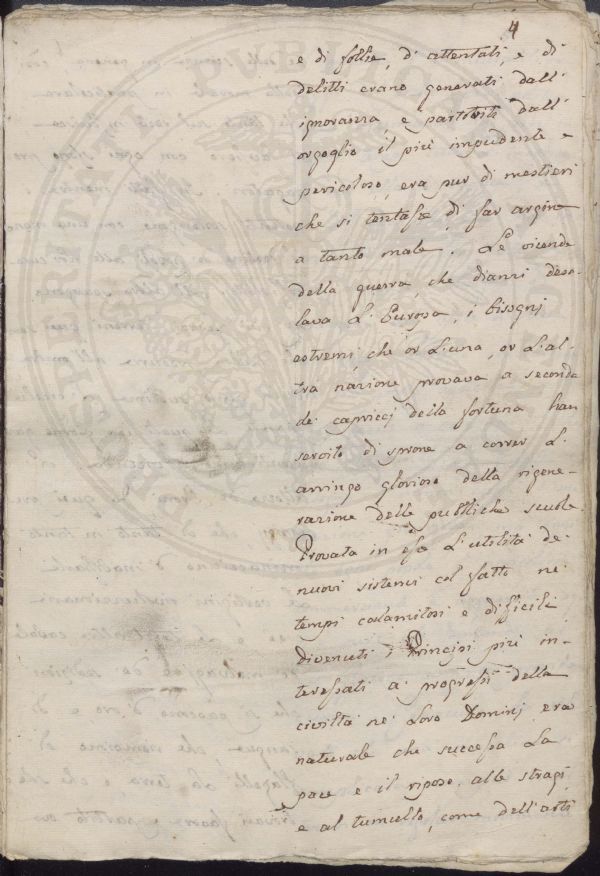 4
e di follie, di attentati, e di
delitti erano generati dall'
ignoranza e partoriti dall'
orgoglio il più impudente e
pericoloso, era pur di mestieri
che si tentasse di far argine
a tanto male. Le vicende
della guerra, che dianzi deso-
lava L'Europa, i bisogni
estremi, che or L'una, or L'al-
tra nazione provava a seconda
de' capriccj della fortuna han
servito di sprone a correr L'
arringo glorioso della rigene-
razione delle pubbliche scuole.
Provata in esse L'utilità de'
nuovi sistemi col fatto ne'
tempi calamitosi e difficili
divenuti i Principi più in-
teressati a' progressi della
civiltà ne' Loro Dominj era
naturale che successa La
pace e il riposo alle stragi
e al tumulto, come dell'arti